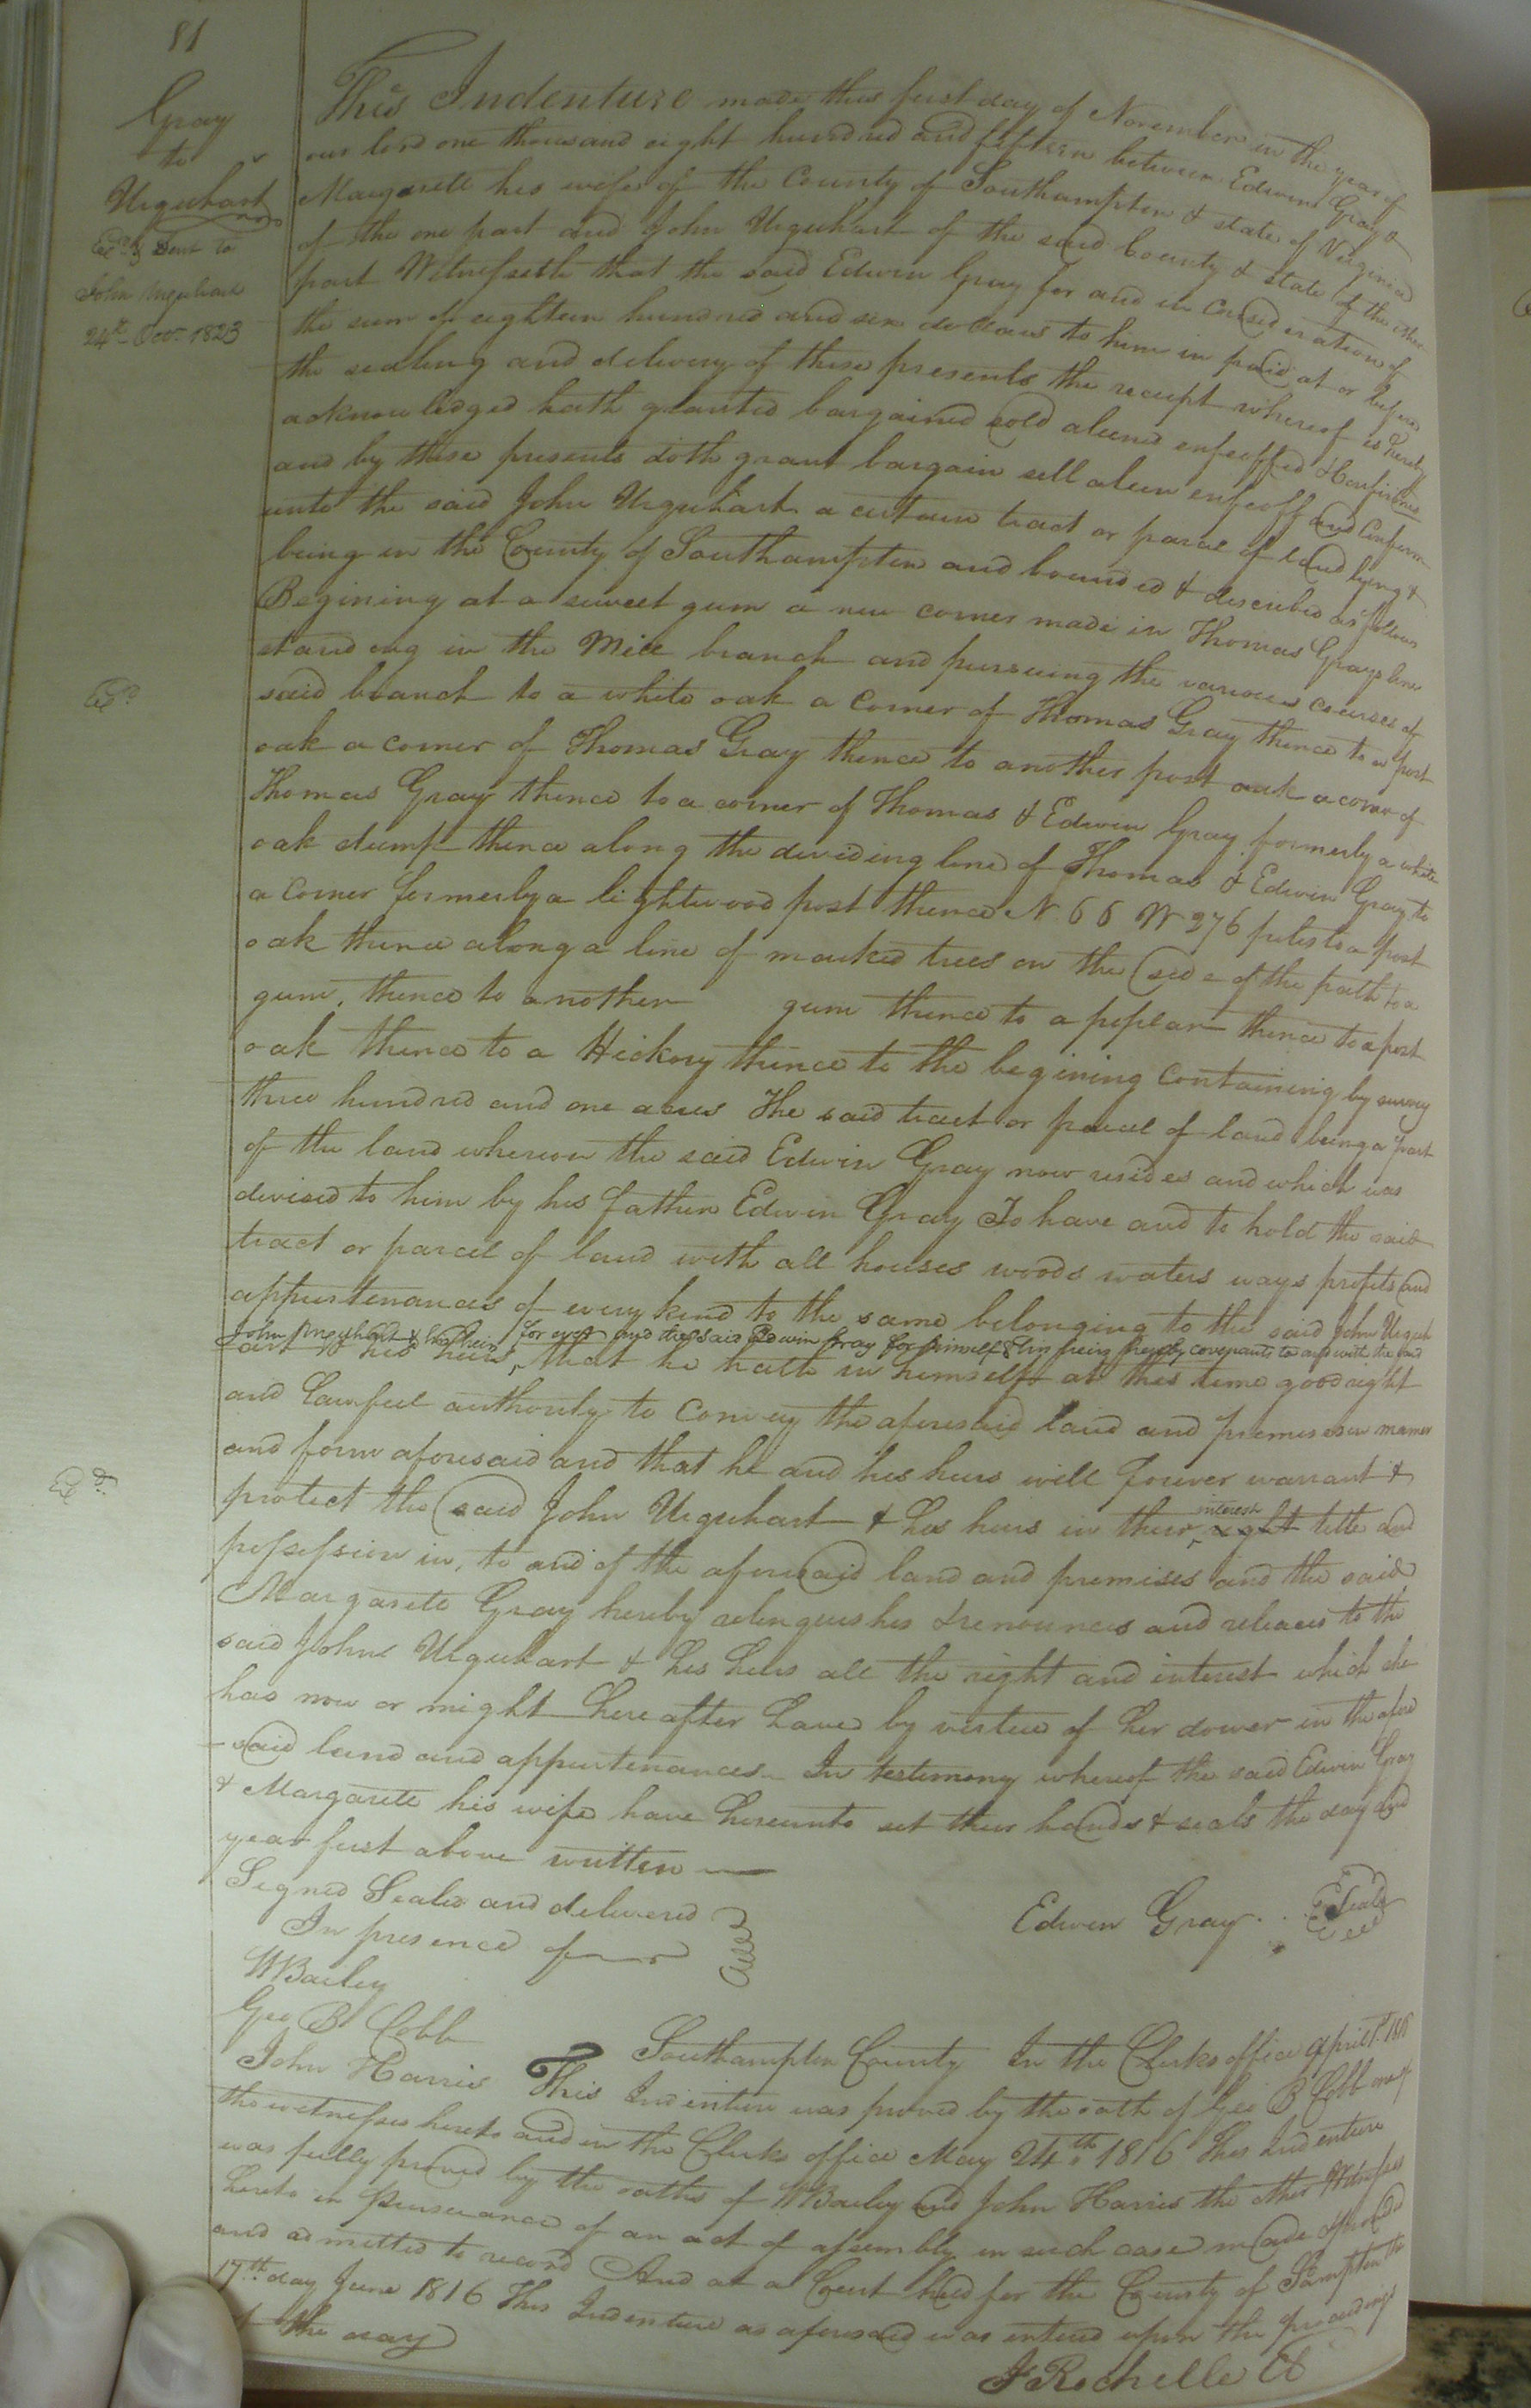 81
Gray
to
Urquhart
Exd. & Sent to
John Urquhart
24th Octr. 1823
This Indenture made this first day of November in the year of
our lord one thousand eight hundred and fifteen between Edwin Gray &
Margarett his wife of the County of Southampton & state of Virginia
of the one part and John Urquhart of the said County & state of the other
part Witnesseth that the said Edwin Gray for and in Consideration of
the sum of eighteen hundred and six dollars to him in paid at or before
the sealing and delivery of these presents the receipt whereof is hereby
acknowledged hath granted bargained sold aliened enfeoffed & Confirmed
and by these presents doth grant bargain sell alien enfeoff and Confirm
unto the said John Urquhart a certain tract or parcel of land lying &
being in the County of Southampton and bounded & described as follows
Begining at a sweet gum a new corner made in Thomas Grays line
standing in the Mill branch and pursuing the various courses of
said branch to a white oak a corner of Thomas Gray thence to a post
oak a corner of Thomas Gray thence to another post oak a corner of
Thomas Gray thence to a corner of Thomas & Edwin Gray formerly a white
oak stump thence along the dividing line of Thomas & Edwin Gray to
a Corner formerly a lightwood post thence N. 66 W 276 poles to a post
oak thence along a line of marked trees on the side of the path to a
gum, thence to another gum thence to a poplar thence to a post
oak thence to a Hickory thence to the begining Containing by survey
three hundred and one acres The said tract or parcel of land being a part
of the land whereon the said Edwin Gray now resides and which was
devised to him by his father Edwin Gray To have and to hold the said
tract or parcel of land with all houses woods waters ways profits and
appurtenances of every kind to the same belonging to the said John Urquh
John Urquhart & his heirs for ever and the said Edwin Gray for himself & his heirs hereby covenants to and with the said
art & his heirs, that he hath in himself at this time good right
and Lawful authority to Convey the aforesaid land and premises in manner
and form aforesaid and that he and his heirs will forever warrant &
protect the said John Urquhart & his heirs in their interest right title and
possession in, to and of the aforesaid land and premises and the said
Margarete Gray hereby relinquishes & renounces and releases to the
said John Urquhart & his heirs all the right and interest which she
has now or might hereafter have by virtue of her dower in the afore
-said land and appurtenances In testimony whereof the said Edwin Gray
& Margarete his wife have hereunto set their hands & seals the day and
year first above written
Signed Sealed and delivered
In presence of
Edwin Gray Seal
W Bailey
Geo B Cobb
John Harris
Southampton County In the Clerks office April 1st.
This Indenture was proved by the oath of Geo B Cobb one of
the witnesses hereto and in the Clerks office May 24th 1816 This Indenture
was fully proved by the oaths of W Bailey and John Harris the other Witnesses
hereto in pursuance of an act of assembly in such case made & provided
and admitted to record And at a Court held for the County of Sampton the
17th day June 1816 This Indenture as aforesaid was entered upon the proceedings
of the day
J Rochelle
Exd.
Exd.